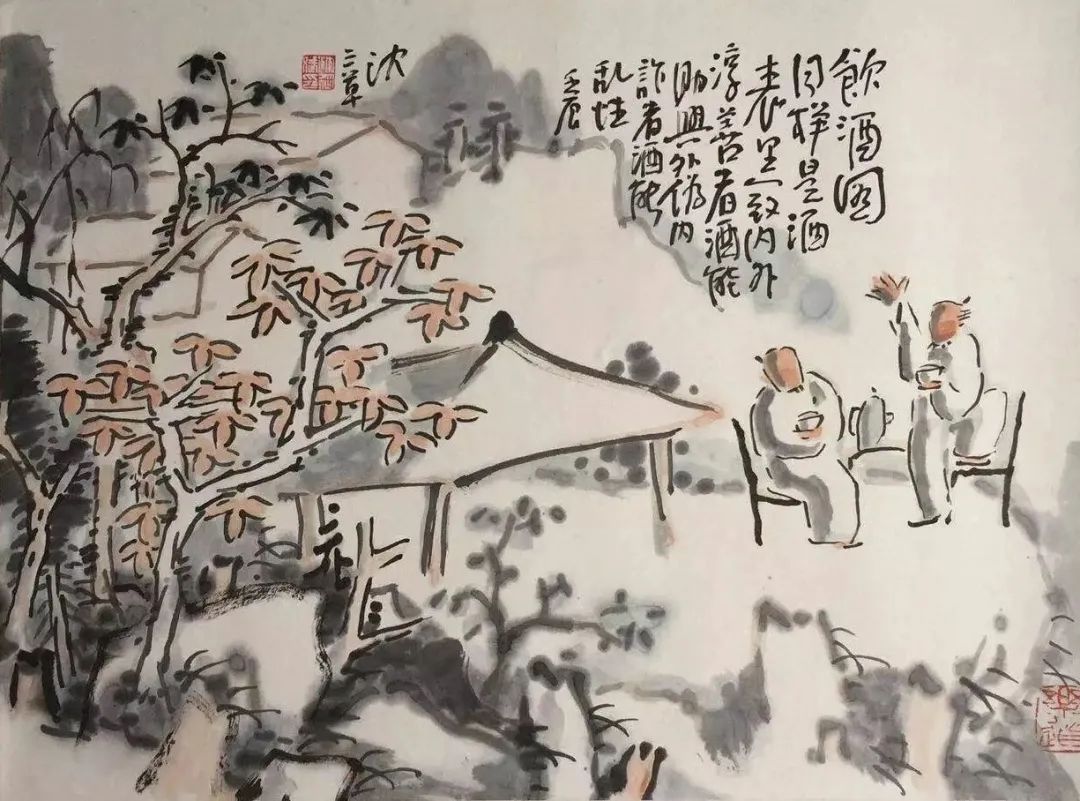 飲酒圖
同样是酒
表里一致内外
淳善者酒能
助興外内
诈者酒能
乱性
壬辰
沈
三草